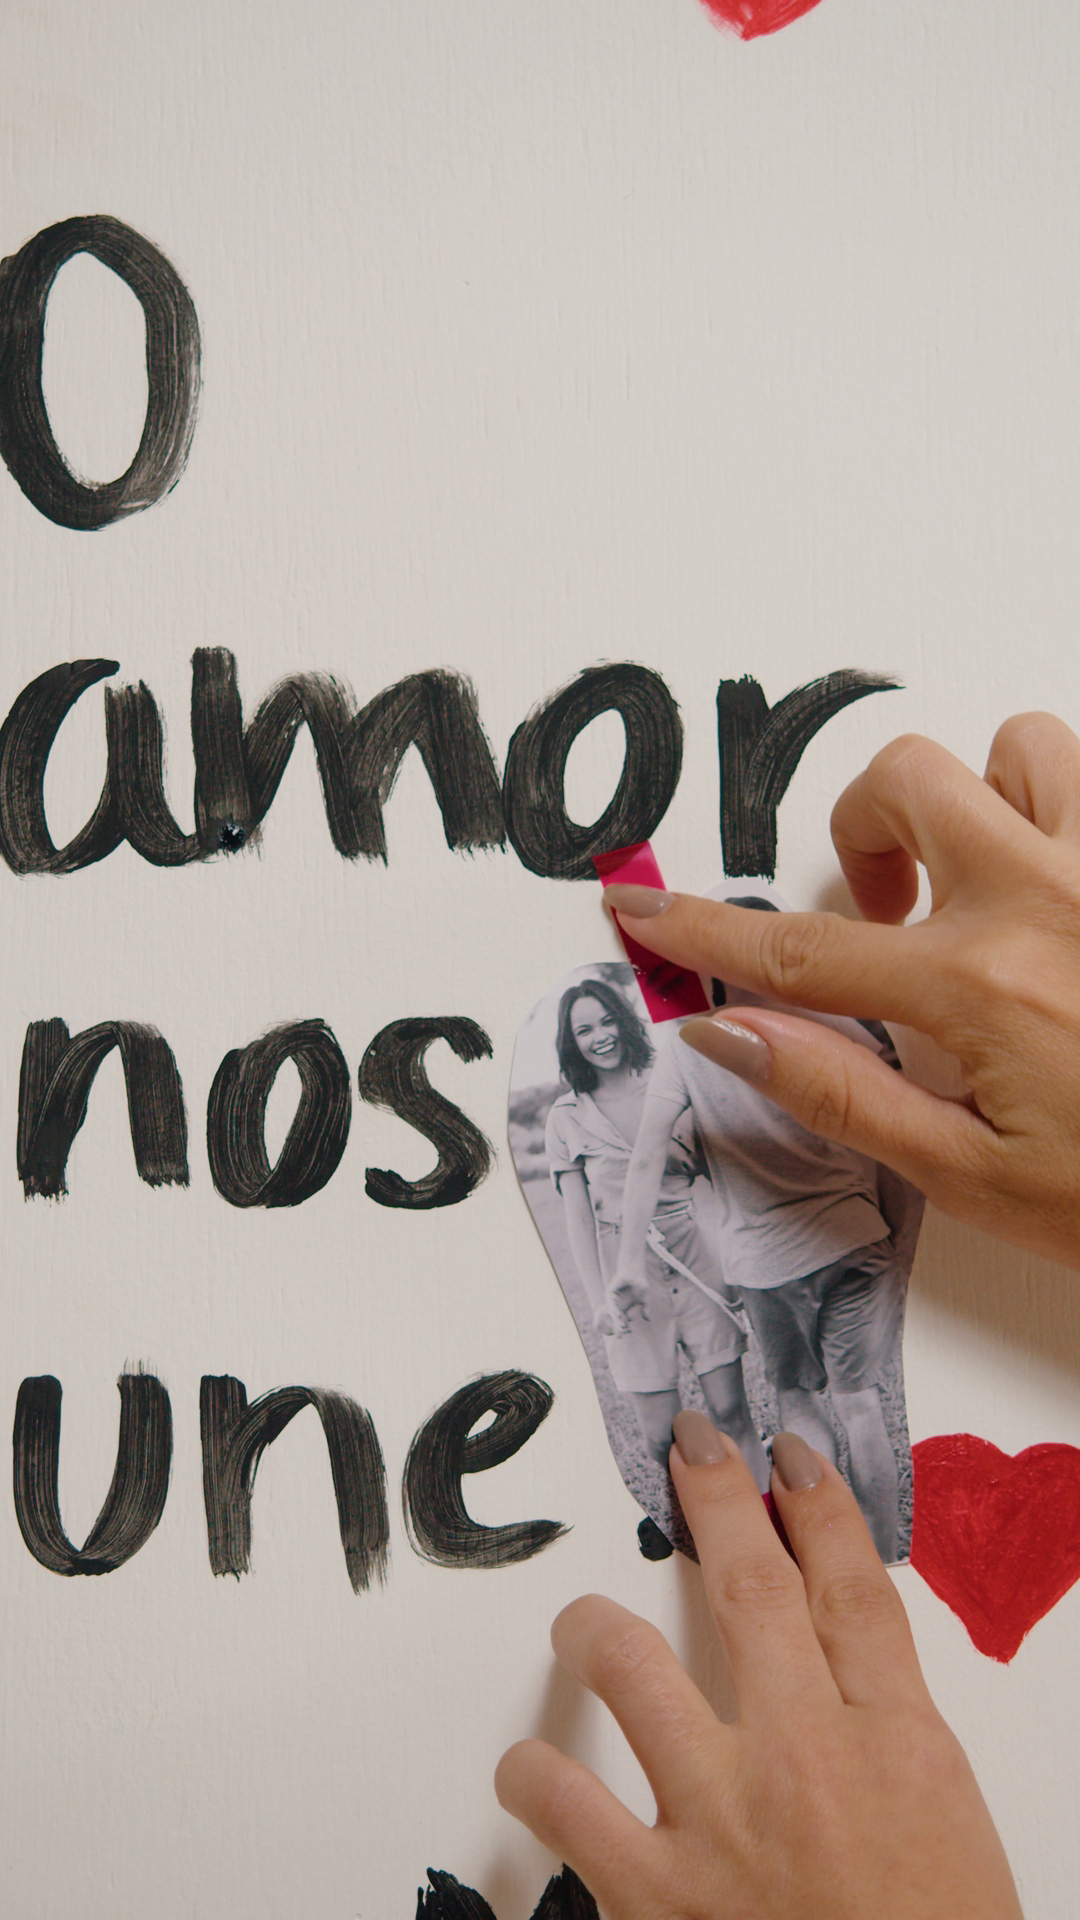 O
amor
nos
une.